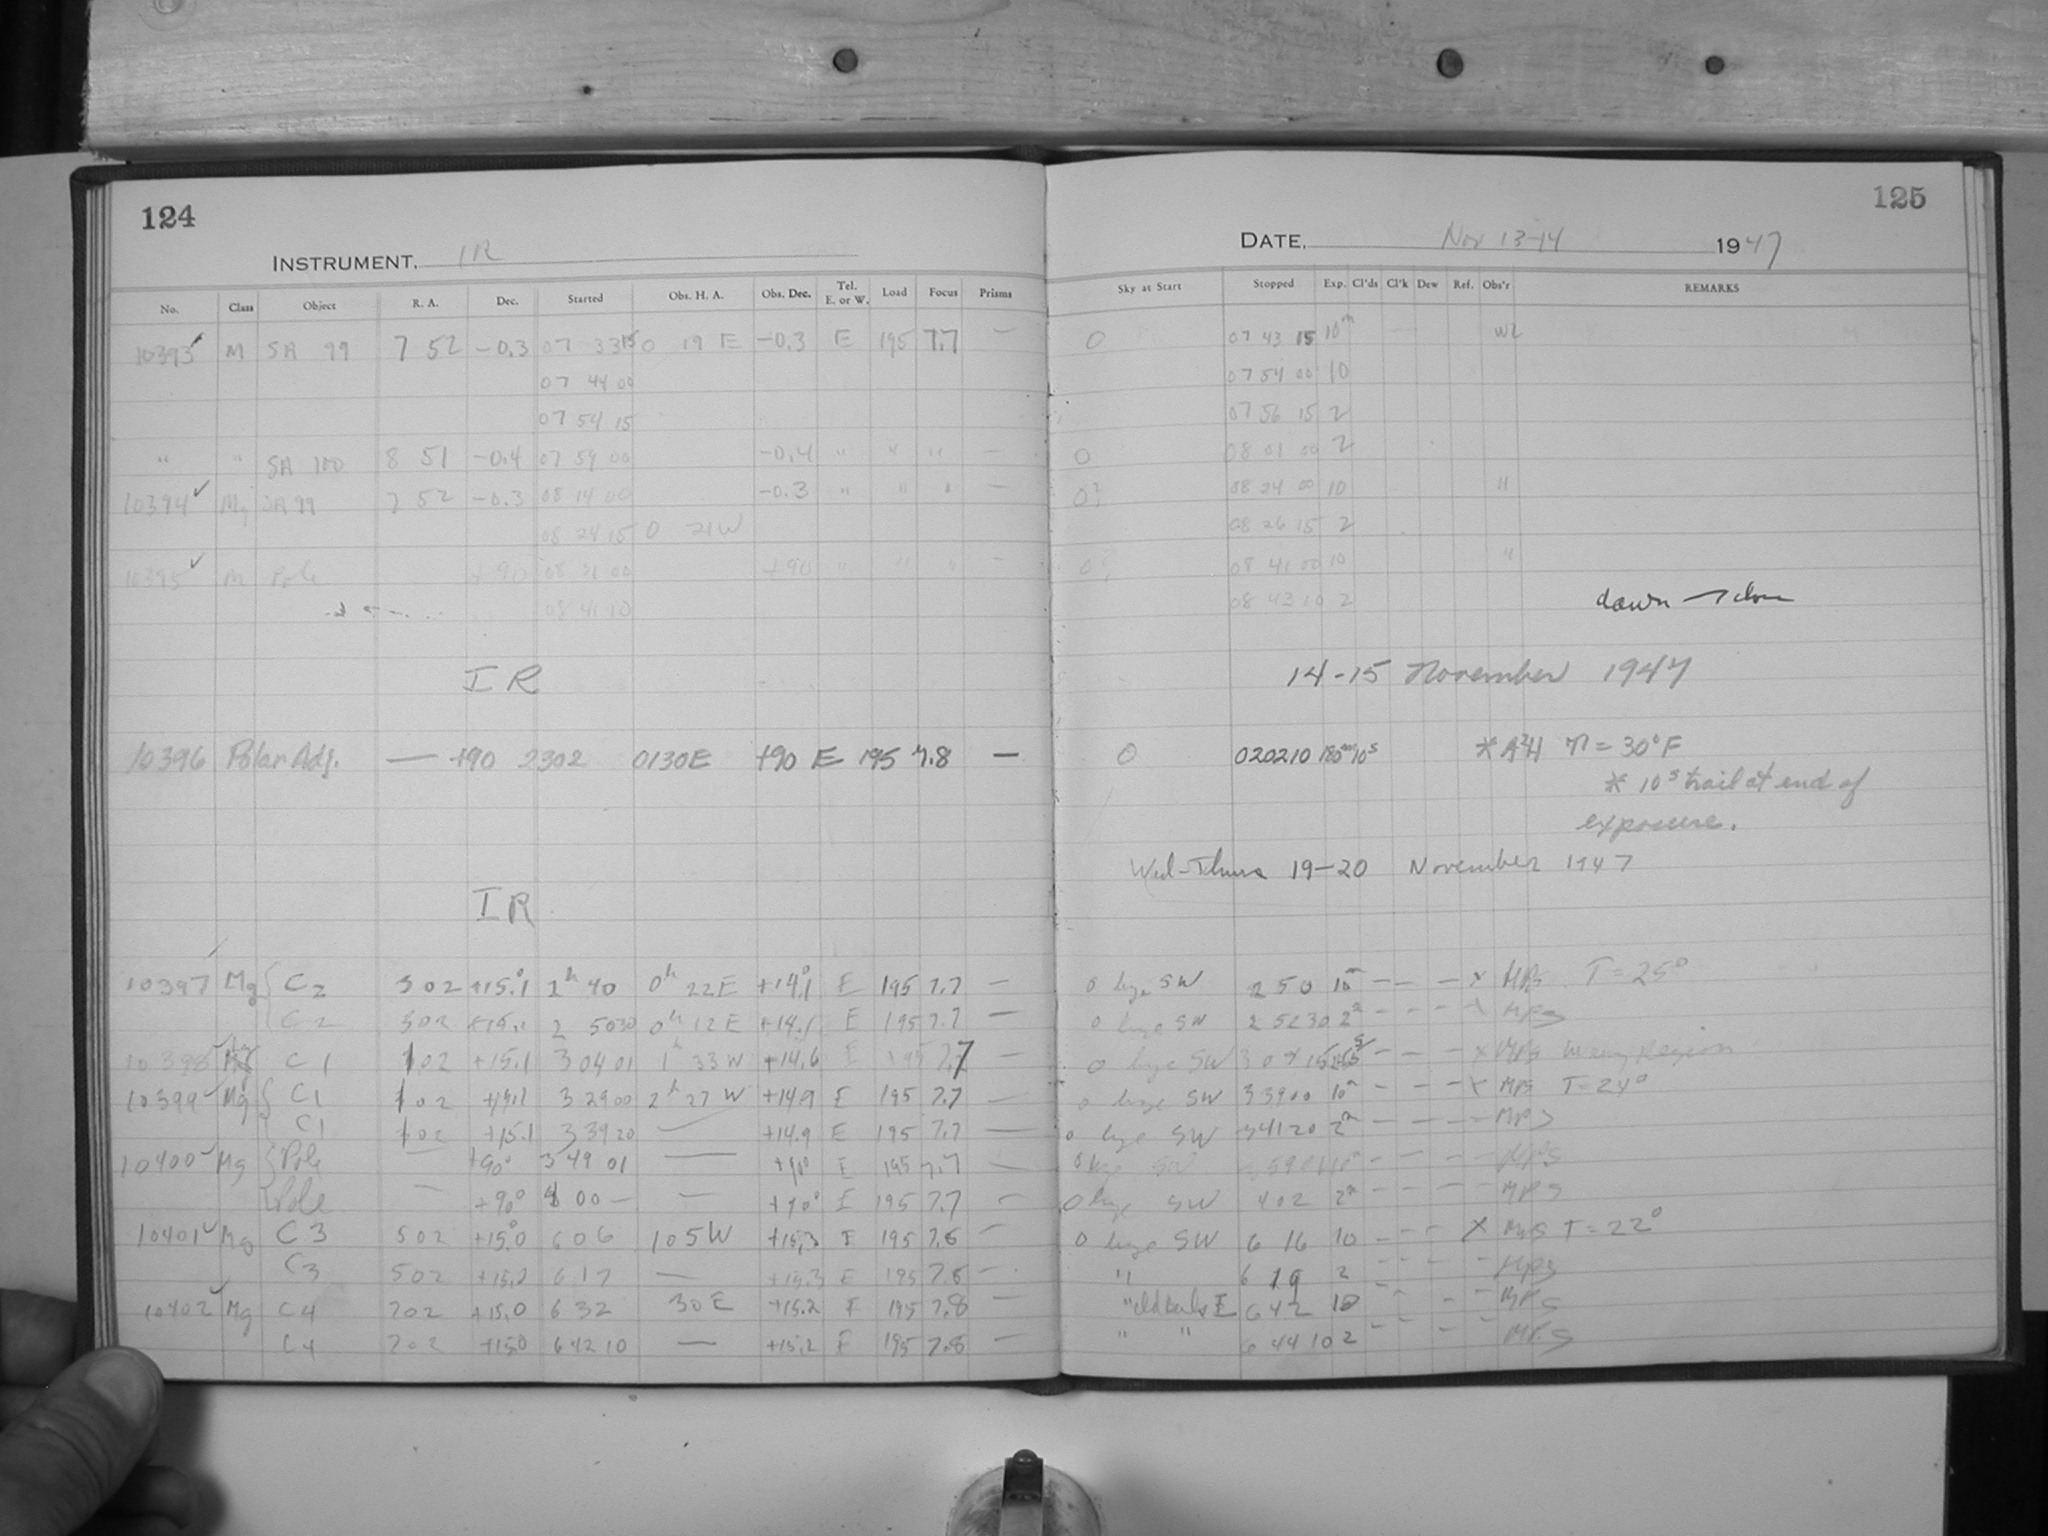 124
INSTRUMENT, IR
No. Class Object R. A. Dec. Started Obs. H. A. Obs. Dec. Tel. E. or W. Load Focus Prisms
10393 M SA 99 7 52 -0.3 07 33 15 0 19 E -0.3 E 195 7.7 —
07 44 00
07 54 15
" " SA 100 8 51 -0.4 07 59 00 -0.4 " " " —
10394 ✓ Mg SA 99 7 52 -0.3 08 14 00 -0.3 " " " —
08 24 15 0 21 W
10395 ✓ M Pole +90 08 31 00 +90 " " " —
08 41 10
IR
10396 Polar Adj. — +90 2302 0130E +90 E 195 7.8 —
IR
10397 Mg { C2 302 +15.1 2h 40 0h 22E +14.1 E 195 7.7 —
C2 302 +15.1 2 5030 0h 12E +14.1 E 195 7.7 —
10398 ✓ C1 102 +15.1 3 04 01 1h 33 W +14.6 E 195 7.7 —
10399 ✓ Mg { C1 102 +15.1 3 29 00 2h 27 W +14.9 E 195 7.7 —
C1 102 +15.1 3 39 20 — +14.9 E 195 7.7 —
10400 ✓ Mg { Pole — +90° 3 49 01 — +90° E 195 7.7 —
Pole — +90° 4 00 — — +90° E 195 7.7 —
10401 ✓ Mg C3 502 +15.0 6 06 1 05 W +15.3 E 195 7.6 —
C3 502 +15.2 6 17 — +15.3 E 195 7.6 —
10402 ✓ Mg C4 702 +15.0 6 32 30 E +15.2 E 195 7.8 —
C4 702 +15.0 6 42 10 — +15.2 E 195 7.8 —
125
DATE, Nov 13-14 1947
Sky at Start Stopped Exp. Cl'ds Cl'k Dew Ref. Obs'r REMARKS
0 07 43 15 10m WL
07 54 00 10
07 56 15 2
0 08 01 00 2
0? 08 24 00 10 "
08 26 15 2
0? 08 41 00 10 "
08 43 10 2 dawn → close
14-15 November 1947
0 020210 180m10s * A2H T = 30°F
* 10s trail at end of
exposure.
Wed-Thurs 19-20 November 1947
0 haze SW 2 50 10m — — — x MPS T = 25°
0 haze SW 2 52 30 2m — — — x MPS
0 haze SW — — — x MPS Region
0 haze SW 3 39 00 10m — — — x MPS T = 24°
0 haze SW 3 41 20 2m — — — — MPS
0 haze SW — — — — MPS
0 haze SW 4 02 2m — — — — MPS
0 haze SW 6 16 10 — — — X MPS T = 22°
" 6 19 2 — — — — MPS
" E 6 42 10 — — — — MPS
" " 6 44 10 2 — — — MPS